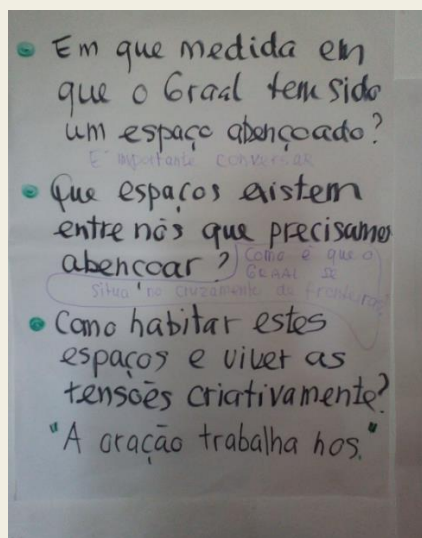 Em que medida em
que o Graal tem sido
um espaço abençoado?
É importante conversar
Que espaços existem
entre nós que precisamos
abençoar?
Como é que o
GRAAL SE
situa no cruzamento de fronteiras
Como habitar estes
espaços e viver as
tensões criativamente?
"A oração trabalha nos."